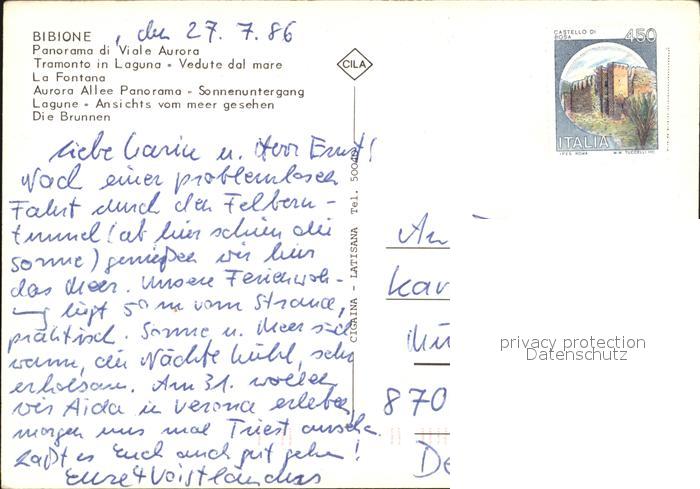 BIBIONE, den 27. 7. 86
Panorama di Viale Aurora
Tramonto in Laguna - Vedute dal mare
La Fontana
Aurora Allee Panorama - Sonnenuntergang
Lagune - Ansichts vom meer gesehen
Die Brunnen
CILA
CASTELLO DI ROSA
450
ITALIA
I.P.Z.S. ROMA
CIGAINA - LATISANA Tel. 50042
Liebe Karin u. Herr Ernst!
Nach einer problemlosen
Fahrt durch den Felbern-
tunnel (ab hier schien die
Sonne) genießen wir hier
das Meer. Unsere Ferienwoh-
nung liegt 50 m vom Strand,
praktisch. Sonne u. Meer sind
warm, die Nächte kühl, sehr
erholsam. Am 31. wollen
wir Aida in Verona erleben,
morgen uns mal Triest ansehn.
Laßt es Euch auch gut gehen!
Eure 4 Voistländers
An
Kar
870
De
privacy protection
Datenschutz